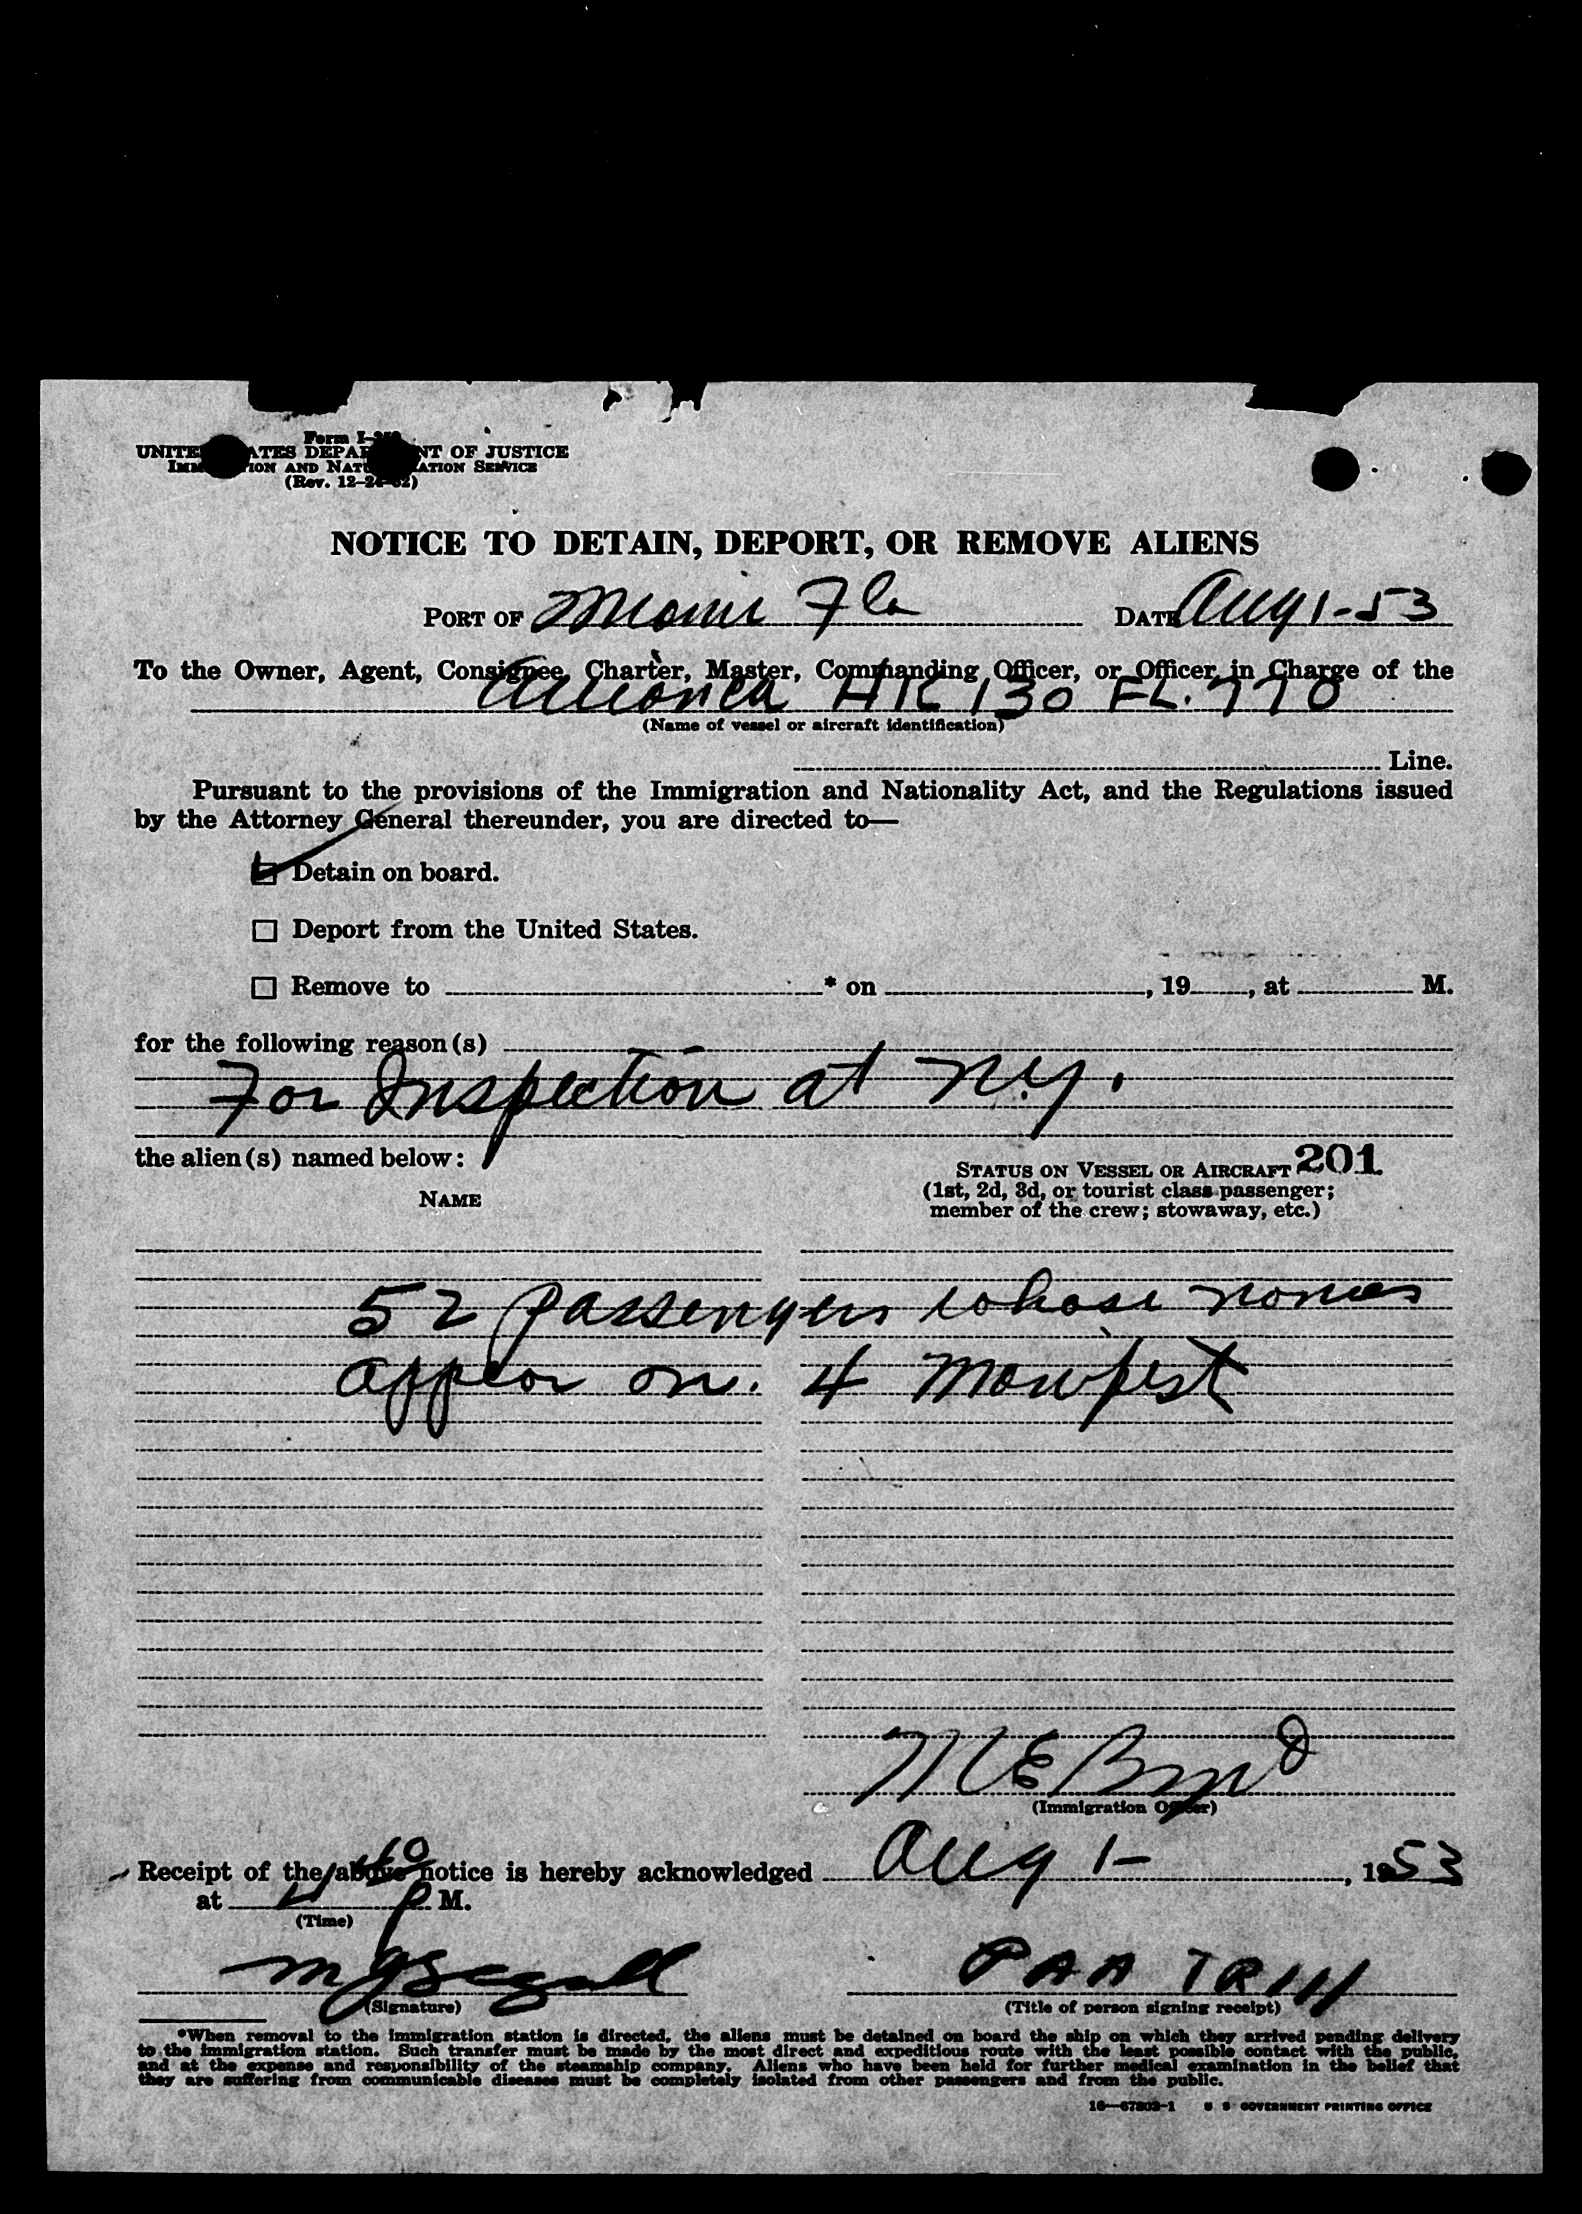 Form I-259
UNITED STATES DEPARTMENT OF JUSTICE
IMMIGRATION AND NATURALIZATION SERVICE
(Rev. 12-24-52)
NOTICE TO DETAIN, DEPORT, OR REMOVE ALIENS
PORT OF Miami Fla DATE Aug 1-53
To the Owner, Agent, Consignee, Charter, Master, Commanding Officer, or Officer in Charge of the
Avianca HK 130 FL. 770
(Name of vessel or aircraft identification)
Line.
Pursuant to the provisions of the Immigration and Nationality Act, and the Regulations issued
by the Attorney General thereunder, you are directed to—
Detain on board.
Deport from the United States.
Remove to * on , 19 , at M.
for the following reason(s)
For Inspection at N.Y.
the alien(s) named below:
STATUS ON VESSEL OR AIRCRAFT 201
NAME
(1st, 2d, 3d, or tourist class passenger;
member of the crew; stowaway, etc.)
52 passengers whose names
appear on. 4 Manifest
M E Byrd
(Immigration Officer)
Receipt of the above notice is hereby acknowledged Aug 1- , 1953
at P M.
(Time)
M J Segall PAA TR
(Signature) (Title of person signing receipt)
*When removal to the immigration station is directed, the aliens must be detained on board the ship on which they arrived pending delivery
to the immigration station. Such transfer must be made by the most direct and expeditious route with the least possible contact with the public,
and at the expense and responsibility of the steamship company. Aliens who have been held for further medical examination in the belief that
they are suffering from communicable diseases must be completely isolated from other passengers and from the public.
16—67802-1 U. S. GOVERNMENT PRINTING OFFICE